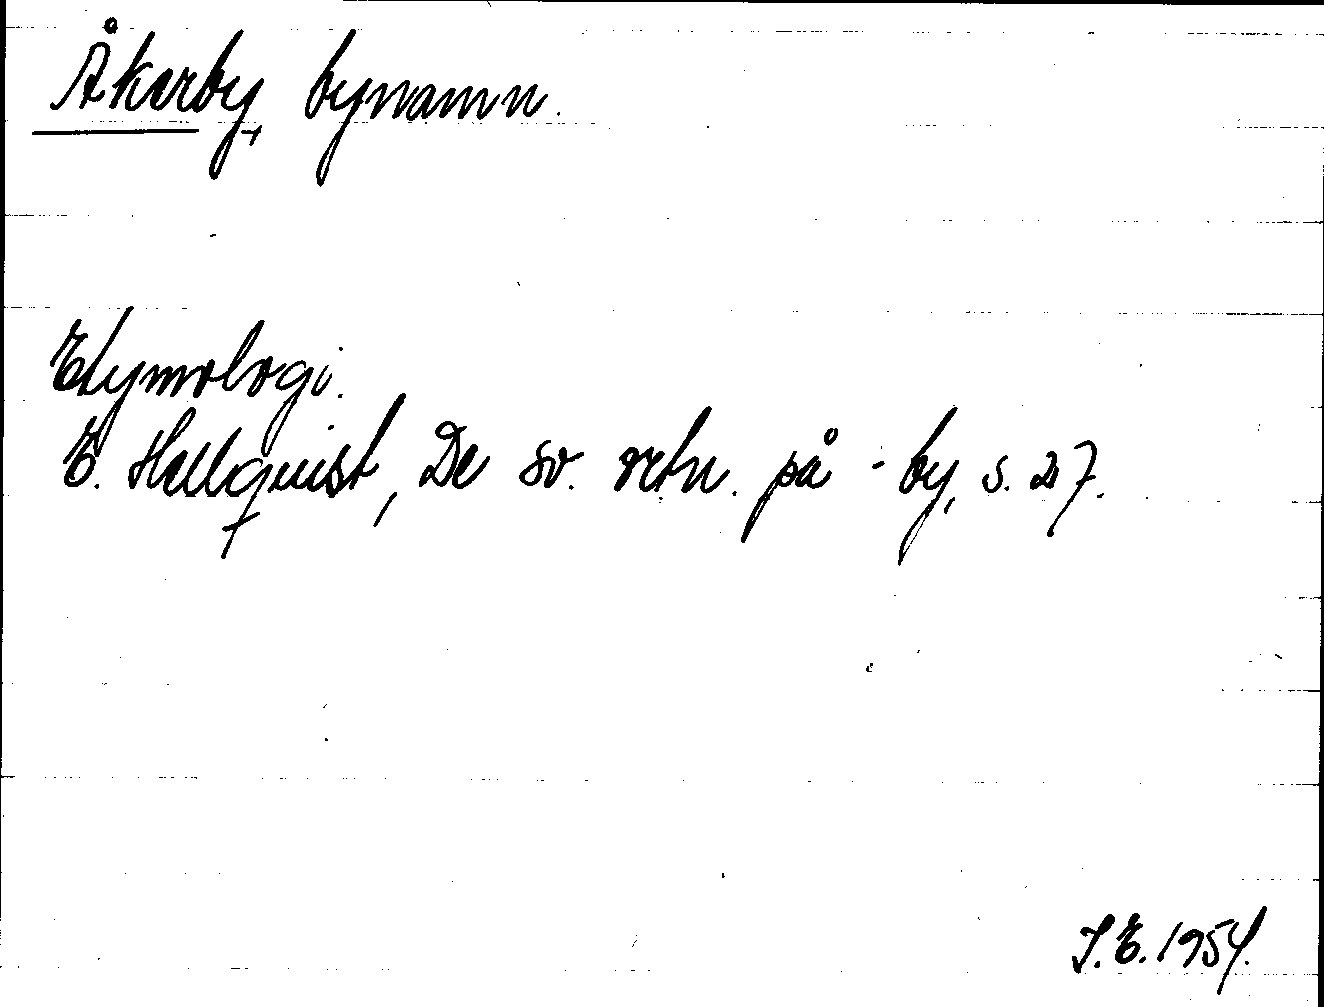 Åkerby, bynamn.
Etymologi.
E. Hellquist, De sv. ortn. på -by, s. 27.
S.E. 1954.